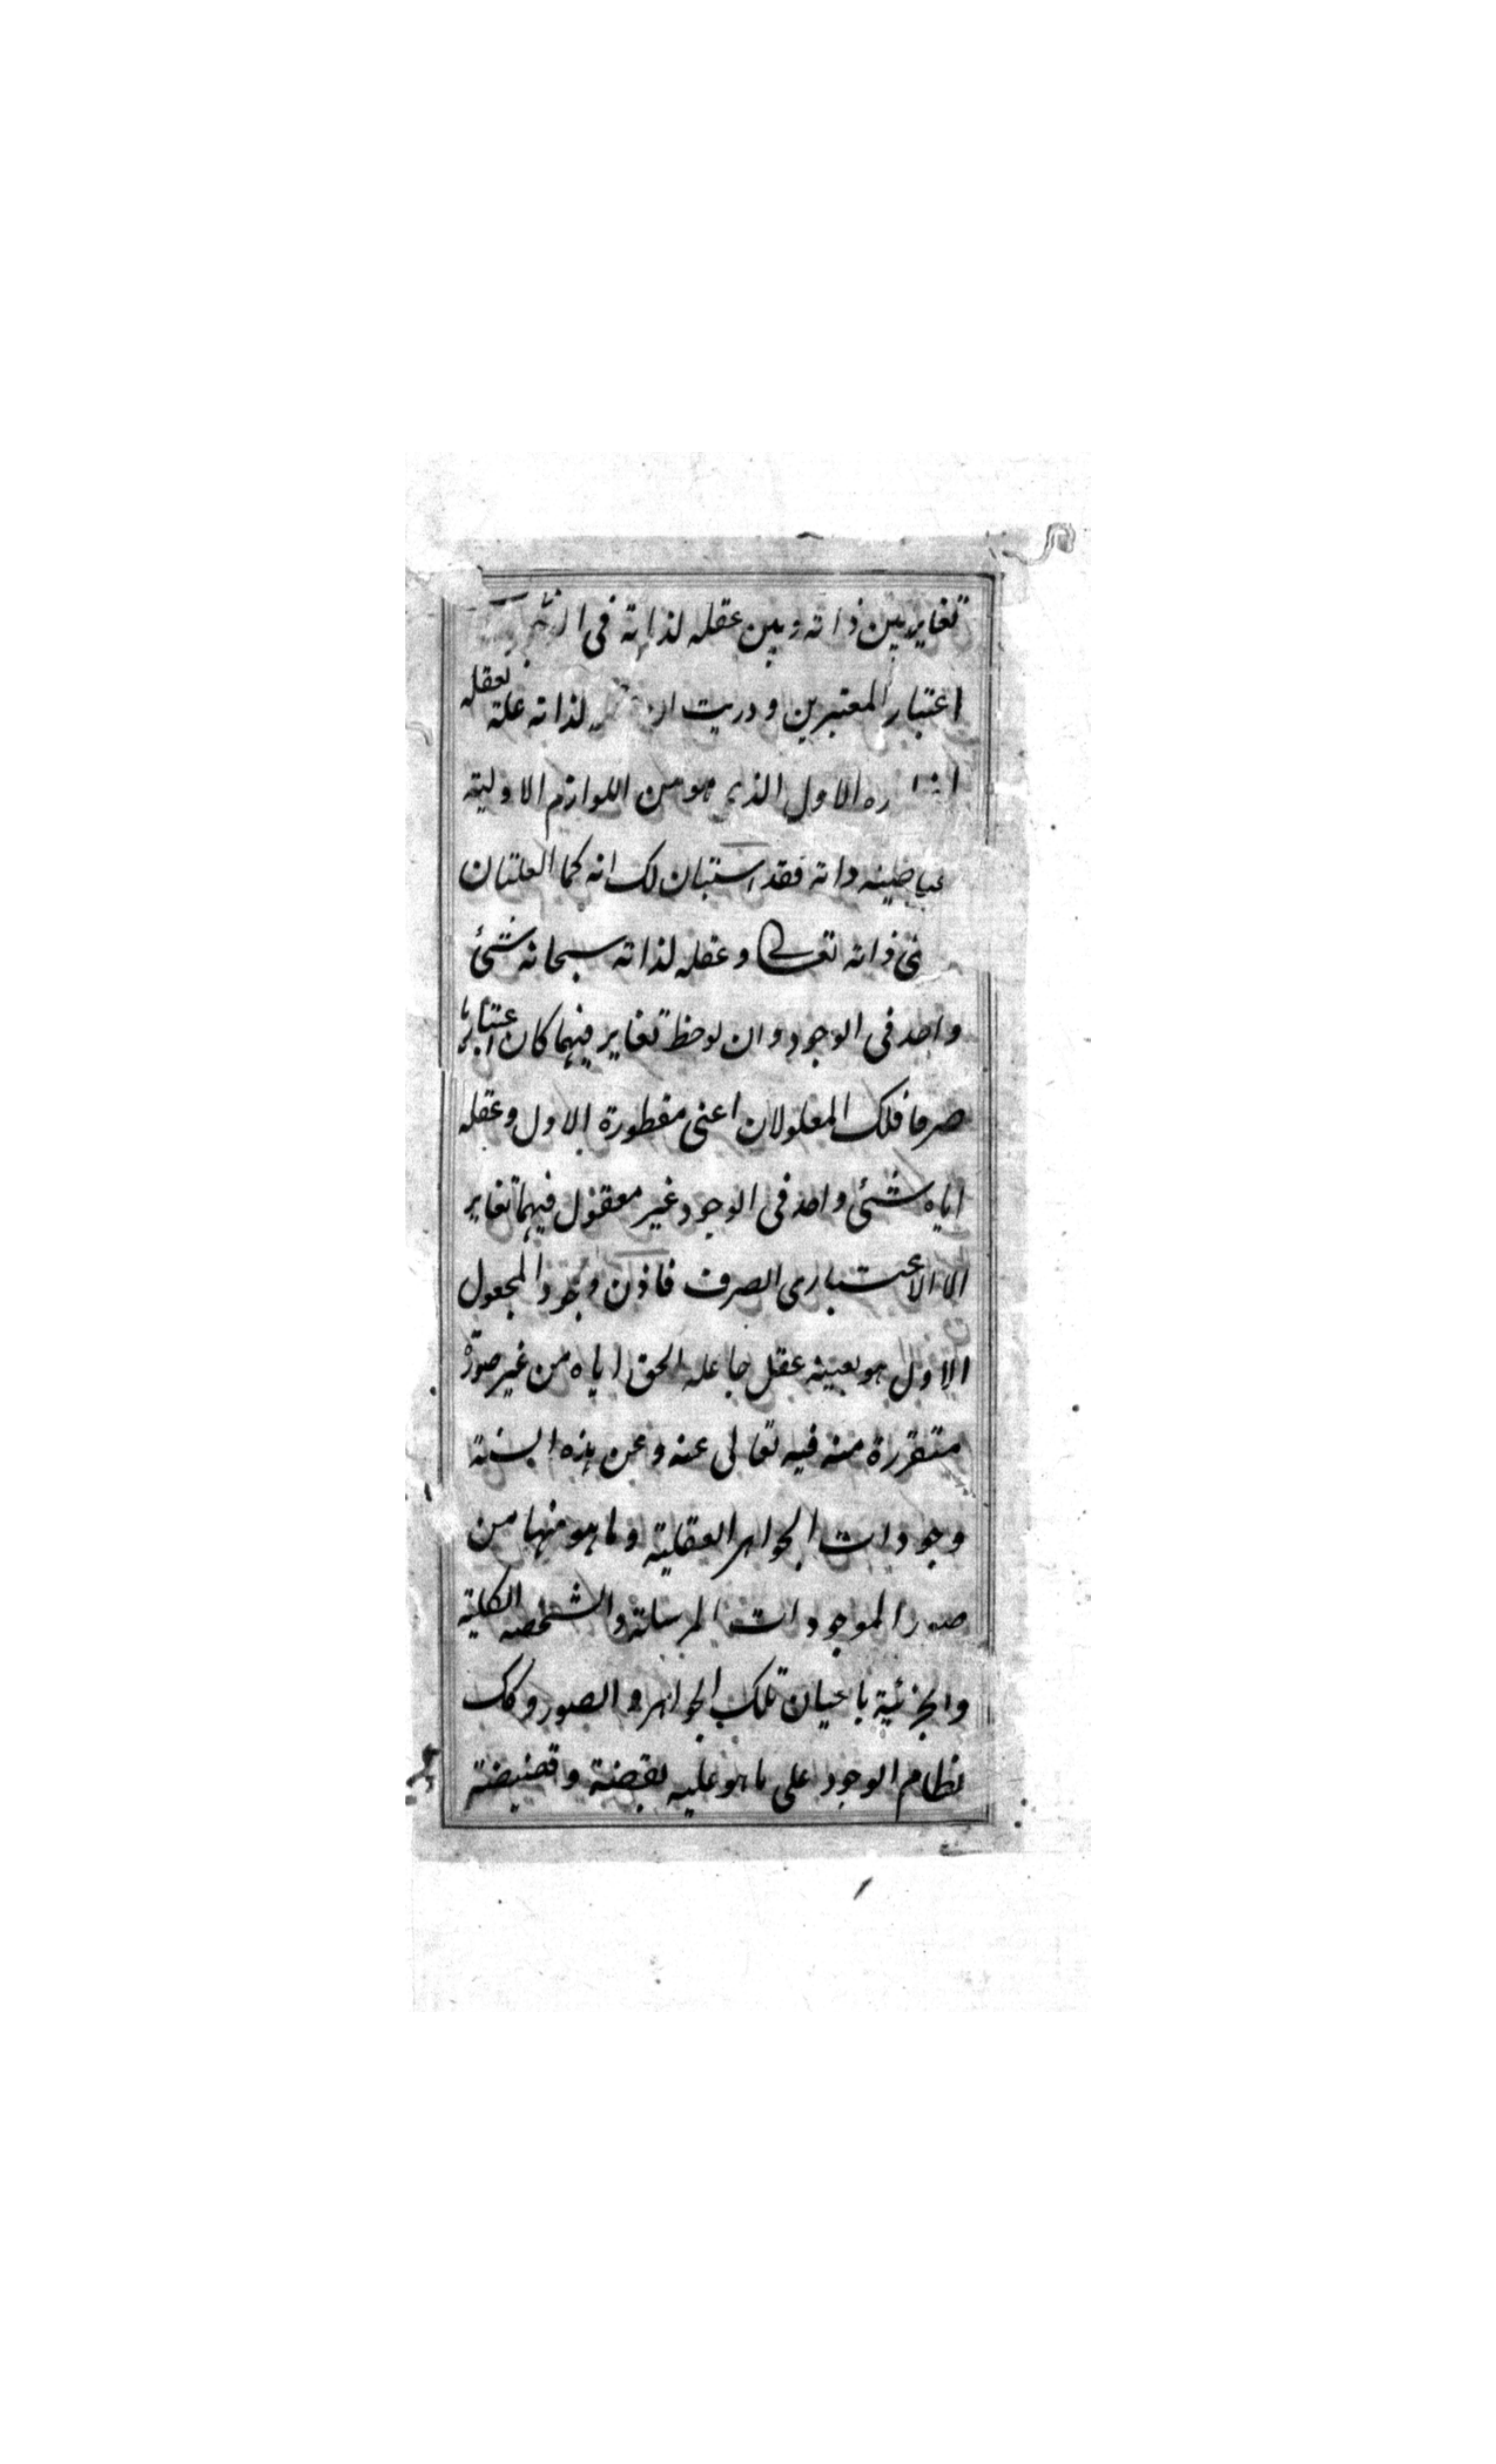 تغاير بين ذاته و بين عقله لذاته فى
اعتبار المعتبرين و دريت ان لذاته علة لعقله
الاول الذى هو من اللوازم الاولية
ذاته فقد استبان لك انه كما العلتان
ذاته تعالى و عقله لذاته سبحانه شئ
واحد فى الوجود و ان لوحظ تغاير فيهما كان اعتباريا
صرفا فلك المعلولان اعنى مفطورة الاول و عقله
اياه شئ واحد فى الوجود غير معقول فيهما تغاير
الا الاعتبارى الصرف فاذن وجود المجعول
الاول هو بعينه عقل جاعله الحق اياه من غير صورة
متقررة منه فيه تعالى عنه و عن هذه السنة
وجودات الجواهر العقلية و ما هو منها من
صور الموجودات المرسلة و الشخصية الكلية
و الجزئية باعيان تلك الجواهر و الصور و كك
نظام الوجود على ما هو عليه بقضه و قضيضه